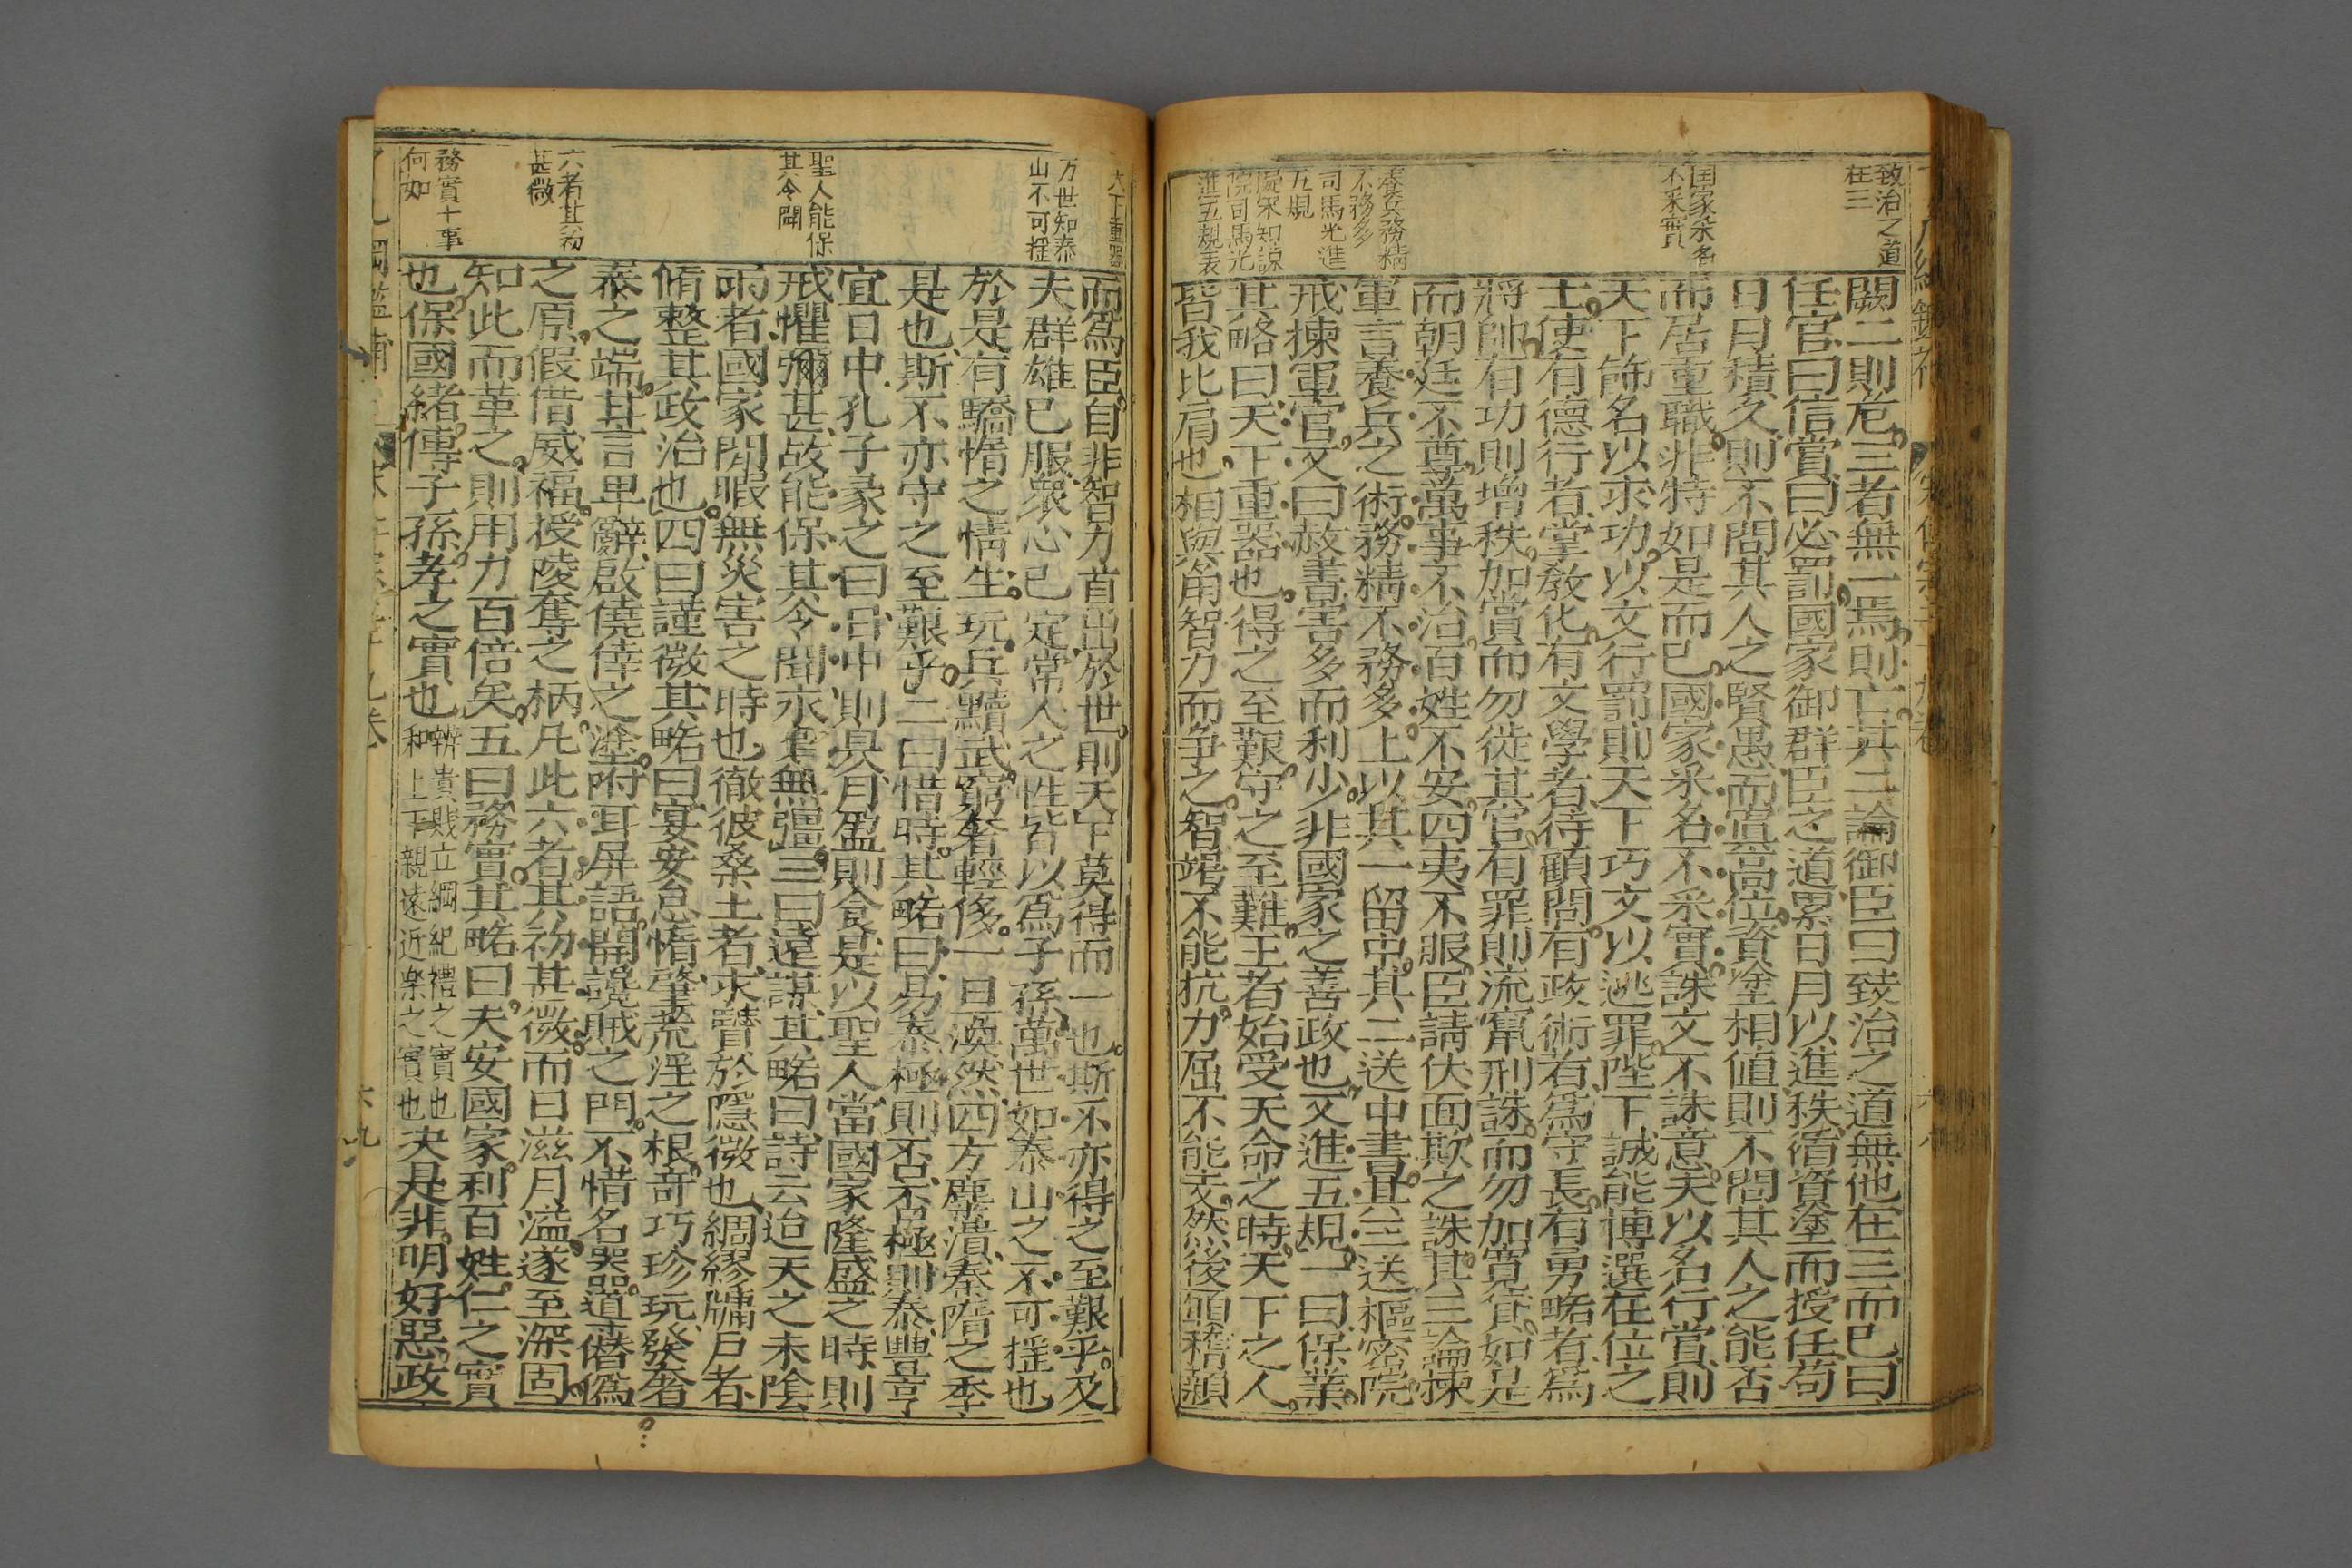 致治之道
在三
囯家采名
不采實
養兵務精
不務多
司馬光進
五規
院司馬光
進五規表
闕二則危三者無一焉則亡其二論御臣曰致治之道無他在三而已曰
任官曰信賞曰必罰國家御群臣之道累日月以進秩循資塗而授任苟
日月積久則不問其人之賢愚而寘高位資塗相值則不問其人之能否
而居重職非特如是而已國家采名不采實誅文不誅意夫以名行賞則
天下飾名以求功以文行罰則天下巧文以逃罪陛下誠能博選在位之
士使有德行者掌教化有文學者待顧問有政術者爲守長有勇略者爲
將帥有功則增秩加賞而勿徙其官有罪則流竄刑誅而勿加寬貸如是
而朝廷不尊萬事不治百姓不安四夷不服臣請伏面欺之誅其三論揀
軍言養兵之術務精不務多上以其一留中其二送中書其三送樞密院
戒揀軍官又曰赦書害多而利少非國家之善政也又進五規一曰保業
其略曰天下重器也得之至艱守之至難王者始受天命之時天下之人
皆我比肩也相與角智力而争之智竭不能抗力屈不能支然後頓稽顙
天下重器
万世如泰
山不可揺
聖人能保
其令聞
六者其初
甚微
務實十事
何如
而爲臣自非智力首出於世則天下莫得而一也斯不亦得之至艱乎及
夫群雄已服衆心已定常人之性皆以爲子孫萬世如泰山之不可揺也
於是有驕惰之情生玩兵黷武窮奢輕侈一旦渙然四方糜潰秦隋之季
是也斯不亦守之至艱乎二曰惜時其略曰易泰極則否否極則泰豐亨
宜日中孔子彖之曰日中則昃月盈則食是以聖人當國家隆盛之時則
戒懼彌甚故能保其令聞永乆無彊三曰遠謀其略曰詩云迨天之未陰
雨者國家閒暇無災害之時也徹彼桑土者求賢於隱微也綢繆牖戶者
脩整其政治也四曰謹微其略曰宴安怠惰肇荒淫之根竒巧珍玩發奢
泰之端甚言卑辭啟僥倖之塗附耳屏語開讒賊之門不惜名器導僭偽
之原假借威福授陵奪之柄凡此六者其初甚微而日滋月溢遂至深固
知此而革之則用力百倍矣五曰務實其略曰夫安國家利百姓仁之實
也保國緒傳子孫孝之實也辨貴賤立綱紀禮之實也和上下親遠近樂之實也夬是非明好惡政